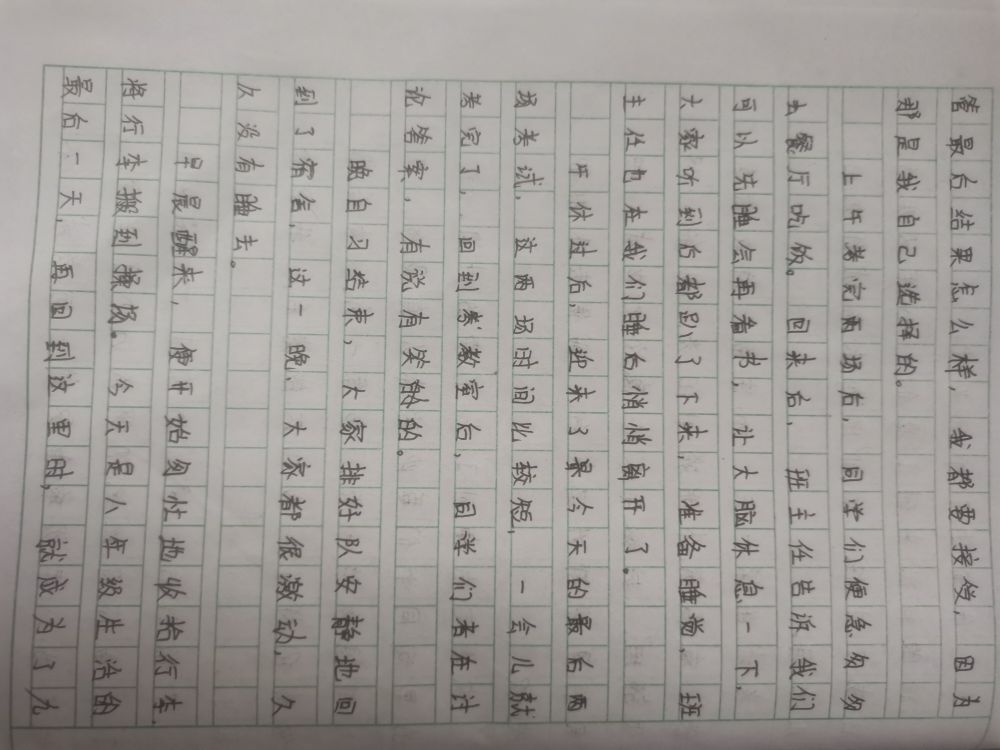 管最后结果怎么样，我都要接受，因为
那是我自己选择的。
上午考完两场后，同学们便急匆匆
去餐厅吃饭。回来后，班主任告诉我们
可以先睡会再看书，让大脑休息一下，
大家听到后都趴了下来，准备睡觉，班
主任也在我们睡后悄悄离开了。
午休过后，迎来了今天的最后两
场考试，这两场时间比较短，一会儿就
考完了，回到教室后，同学们都在讨
论答案，有说有笑的。
晚自习结束，大家排好队安静地回
到了宿舍，这一晚，大家都很激动，久
久没有睡去。
早晨醒来，便开始匆忙地收拾行李，
将行李搬到操场。今天是八年级生活的
最后一天，再回到这里时，就成为了九